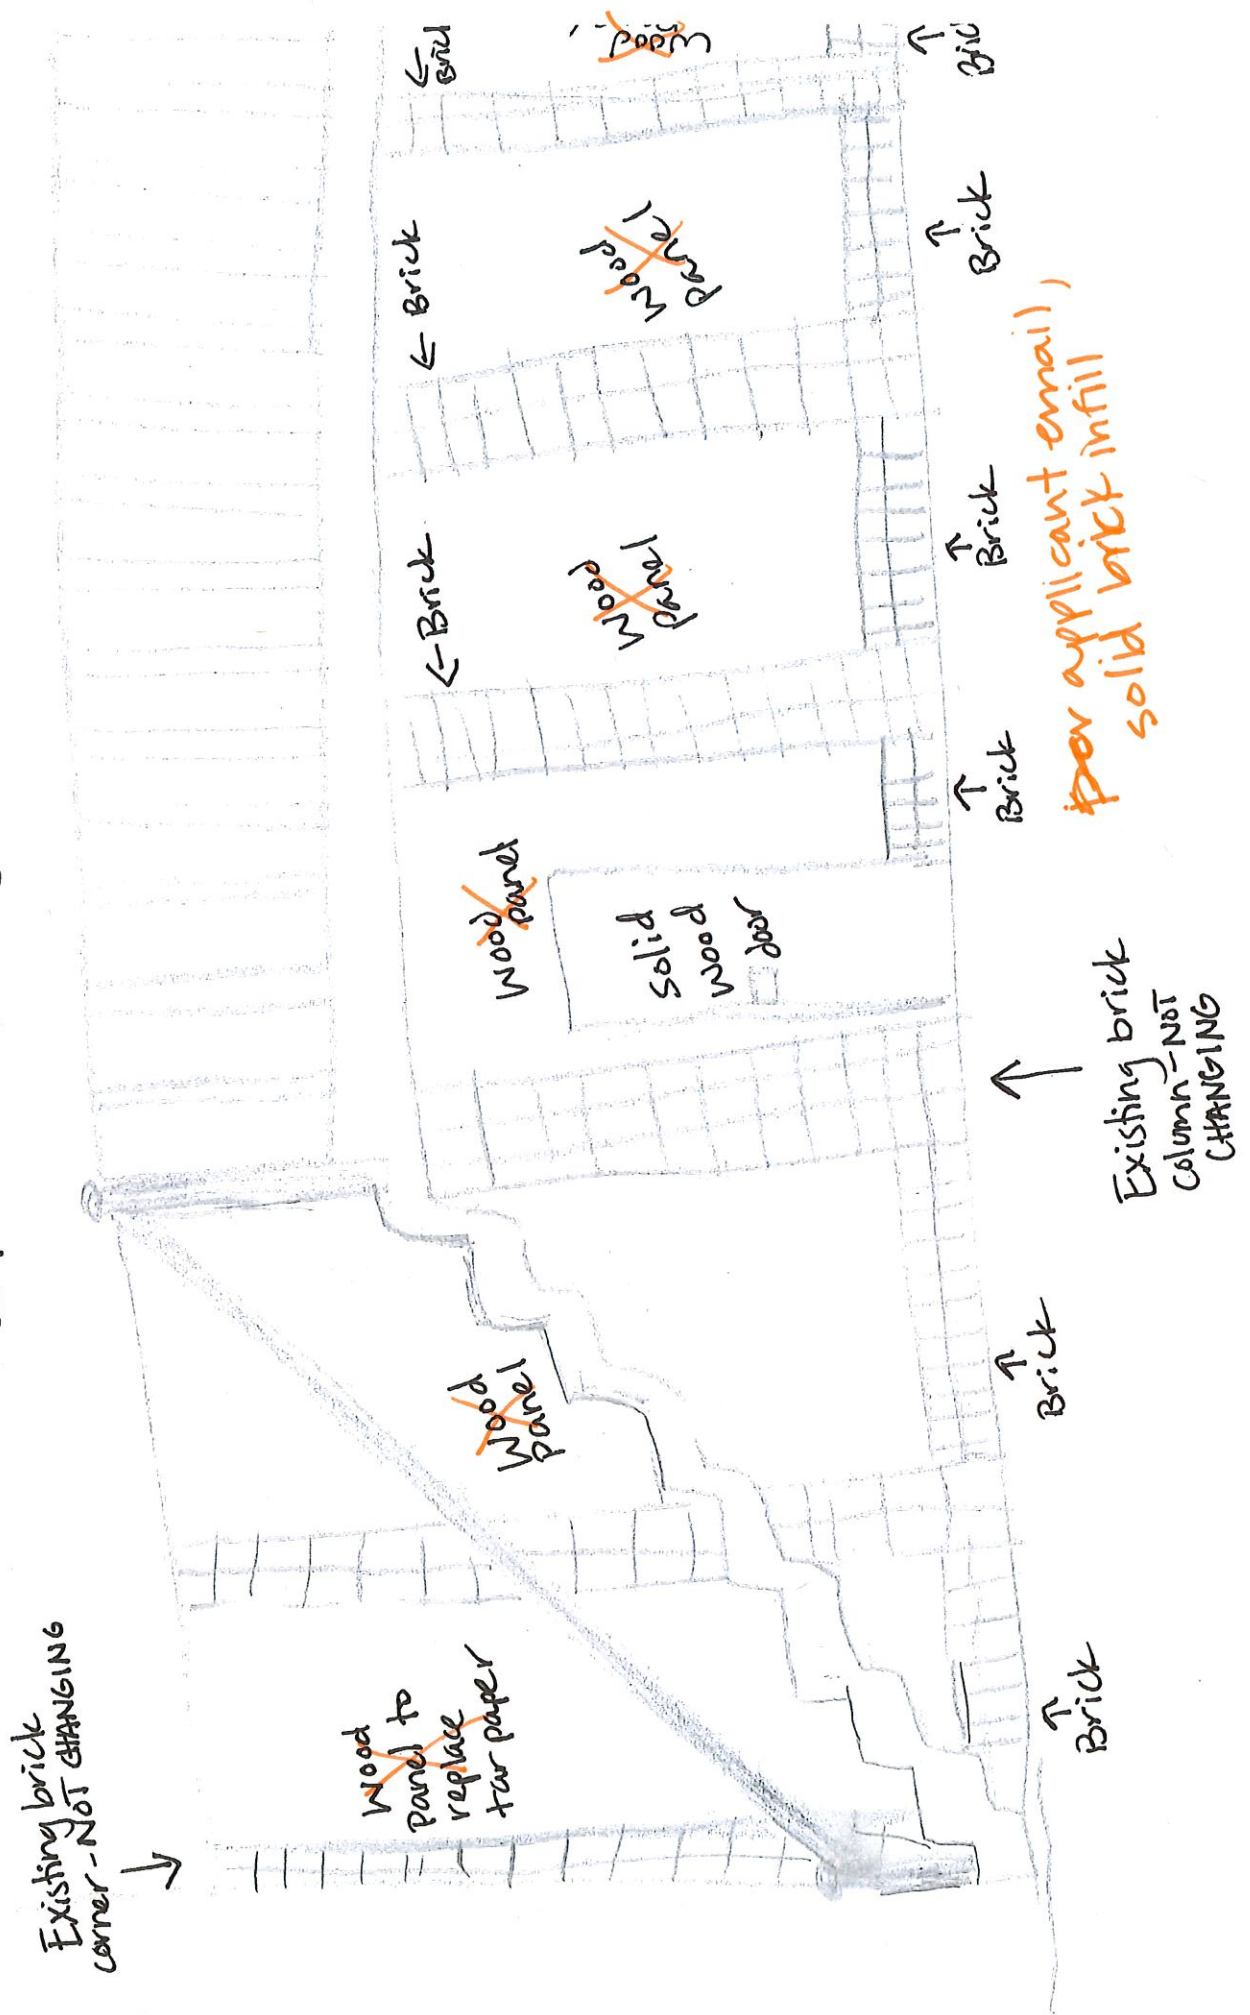 Existing brick
corner - NOT CHANGING
Wood
panel to
replace
tar paper
Wood
panel
Wood
panel
solid
wood
door
← Brick
Wood
panel
← Brick
Wood
panel
↑
Brick
↑
Brick
Existing brick
column - NOT
CHANGING
↑
Brick
↑
Brick
↑
Brick
per applicant email,
solid brick infill